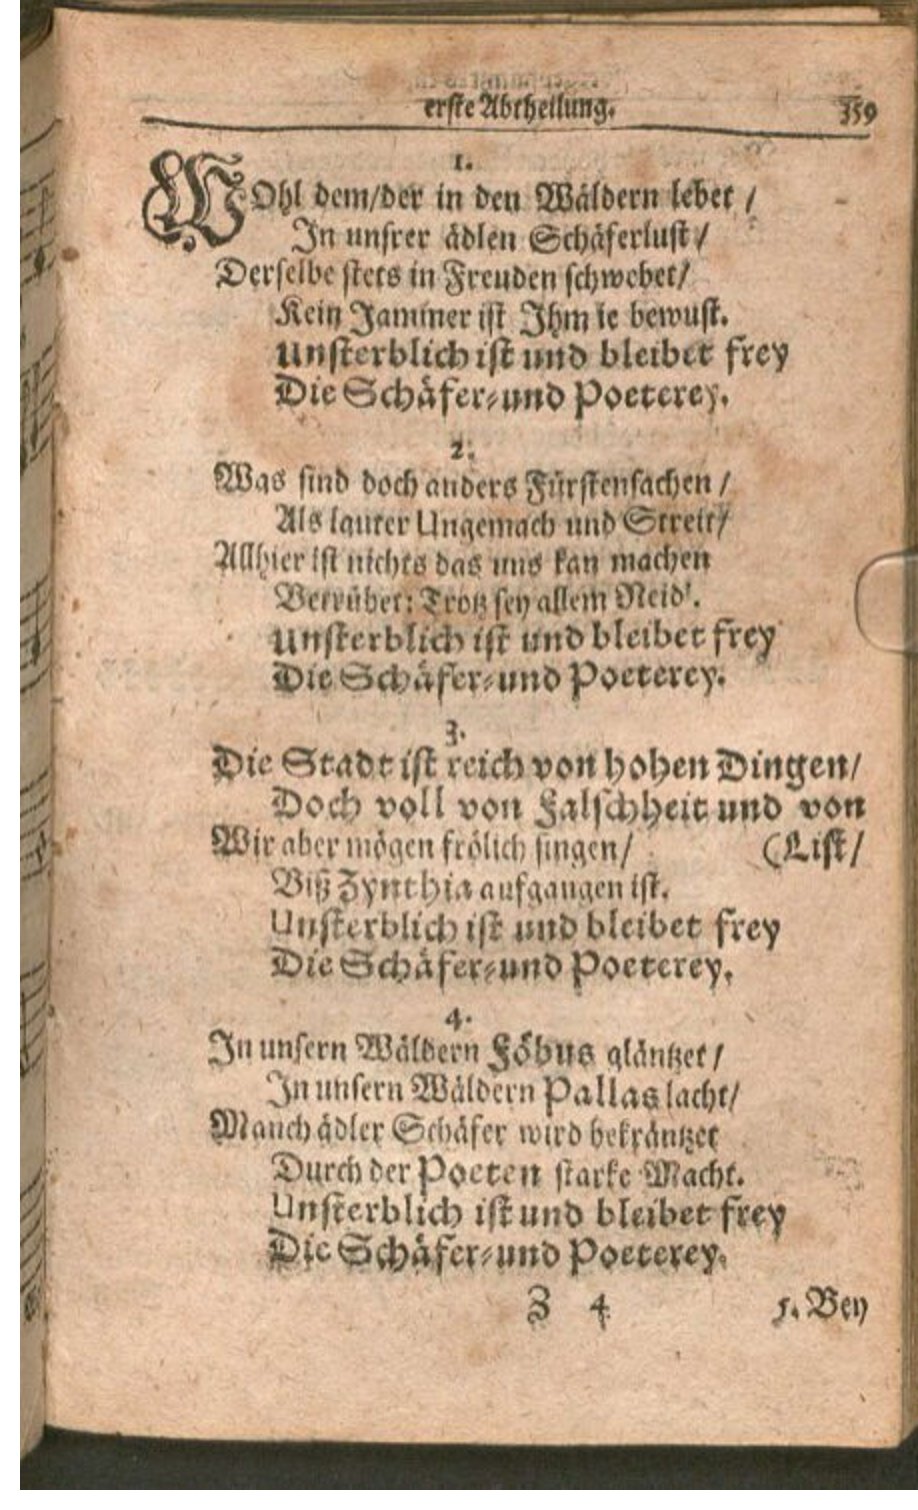 erste Abtheilung. 359
1.
WOhl dem/der in den Wäldern lebet /
In unsrer ädlen Schäferlust /
Derselbe stets in Freuden schwebet/
Kein Jammer ist Ihm ie bewust.
Unsterblich ist und bleibet frey
Die Schäfer-und Poeterey.
2.
Was sind doch anders Fürstensachen /
Als lauter Ungemach und Streit/
Allhier ist nichts das uns kan machen
Betrübet: Trotz sey allem Neid'.
Unsterblich ist und bleibet frey
Die Schäfer-und Poeterey.
3.
Die Stadt ist reich von hohen Dingen/
Doch voll von Falschheit und von
Wir aber mögen frölich singen/ (List/
Biß Zynthia aufgangen ist.
Unsterblich ist und bleibet frey
Die Schäfer-und Poeterey.
4.
In unsern Wäldern Föbus gläntzet /
In unsern Wäldern Pallas lacht/
Manch ädler Schäfer wird bekräntzet
Durch der Poeten starke Macht.
Unsterblich ist und bleibet frey
Die Schäfer-und Poeterey.
Z 4 5. Bey